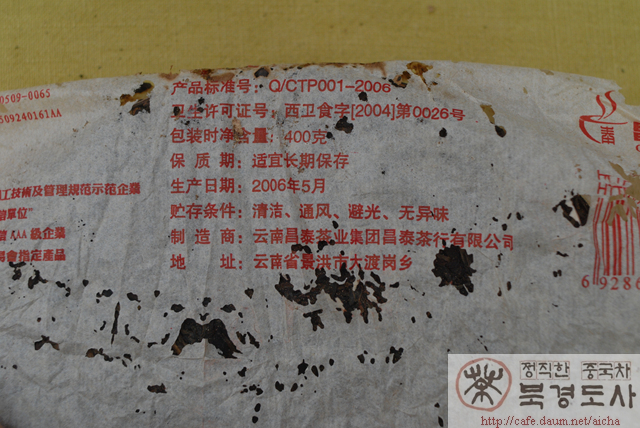 0509-0065
509240161AA
工技術及管理規范示范企業
AAA 級企業
會指定產品
产品标准号：Q/CTP001-2006
卫生许可证号：西卫食字[2004]第0026号
包装时净含量：400克
保 质 期：适宜长期保存
生产日期：2006年5月
贮存条件：清洁、通风、避光、无异味
制 造 商：云南昌泰茶业集团昌泰茶行有限公司
地 址：云南省景洪市大渡岗乡
6 9286
정직한 중국차
북경도사
http://cafe.daum.net/aicha